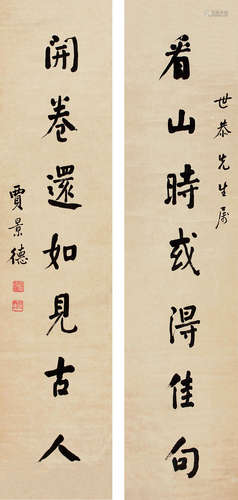 世恭先生属
看山時或得佳句
開卷還如見古人
賈景德